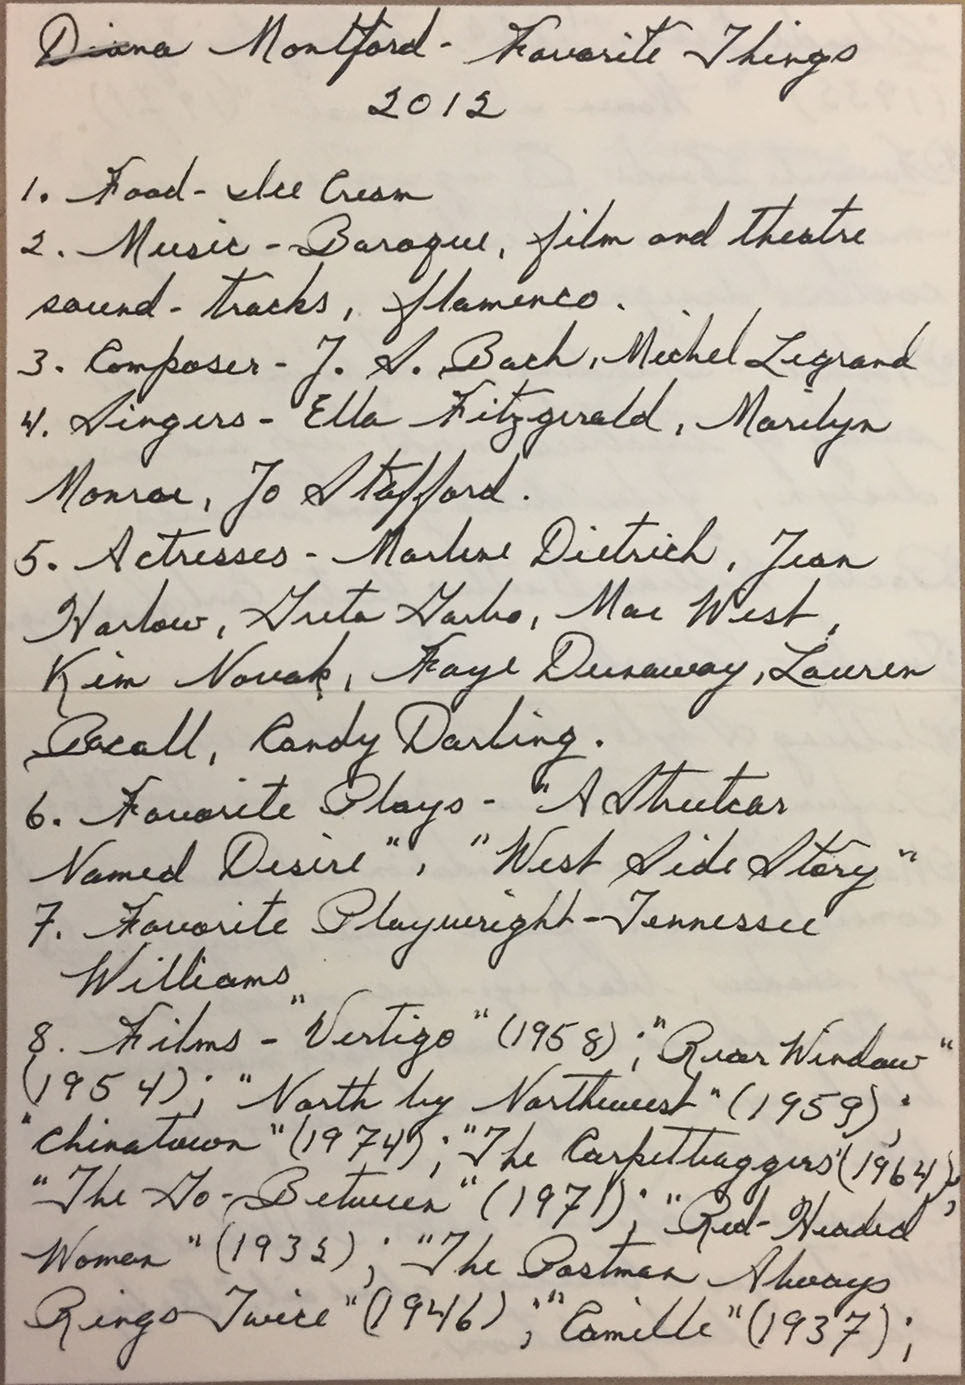 Diana Montford - Favorite Things
2012
1. Food - Ice Cream
2. Music - Baroque, film and theatre
sound-tracks, flamenco.
3. Composer - J. S. Bach, Michel Legrand
4. Singers - Ella Fitzgerald, Marilyn
Monroe, Jo Stafford.
5. Actresses - Marlene Dietrich, Jean
Harlow, Greta Garbo, Mae West,
Kim Novak, Faye Dunaway, Lauren
Bacall, Candy Darling.
6. Favorite Plays - "A Streetcar
Named Desire", "West Side Story"
7. Favorite Playwright - Tennessee
Williams
8. Films - "Vertigo" (1958); "Rear Window"
(1954); "North by Northwest" (1959);
"Chinatown" (1974); "The Carpetbaggers" (1964);
"The Go-Between" (1971); "Red-Headed
Woman" (1932); "The Postman Always
Rings Twice" (1946); "Camille" (1937);